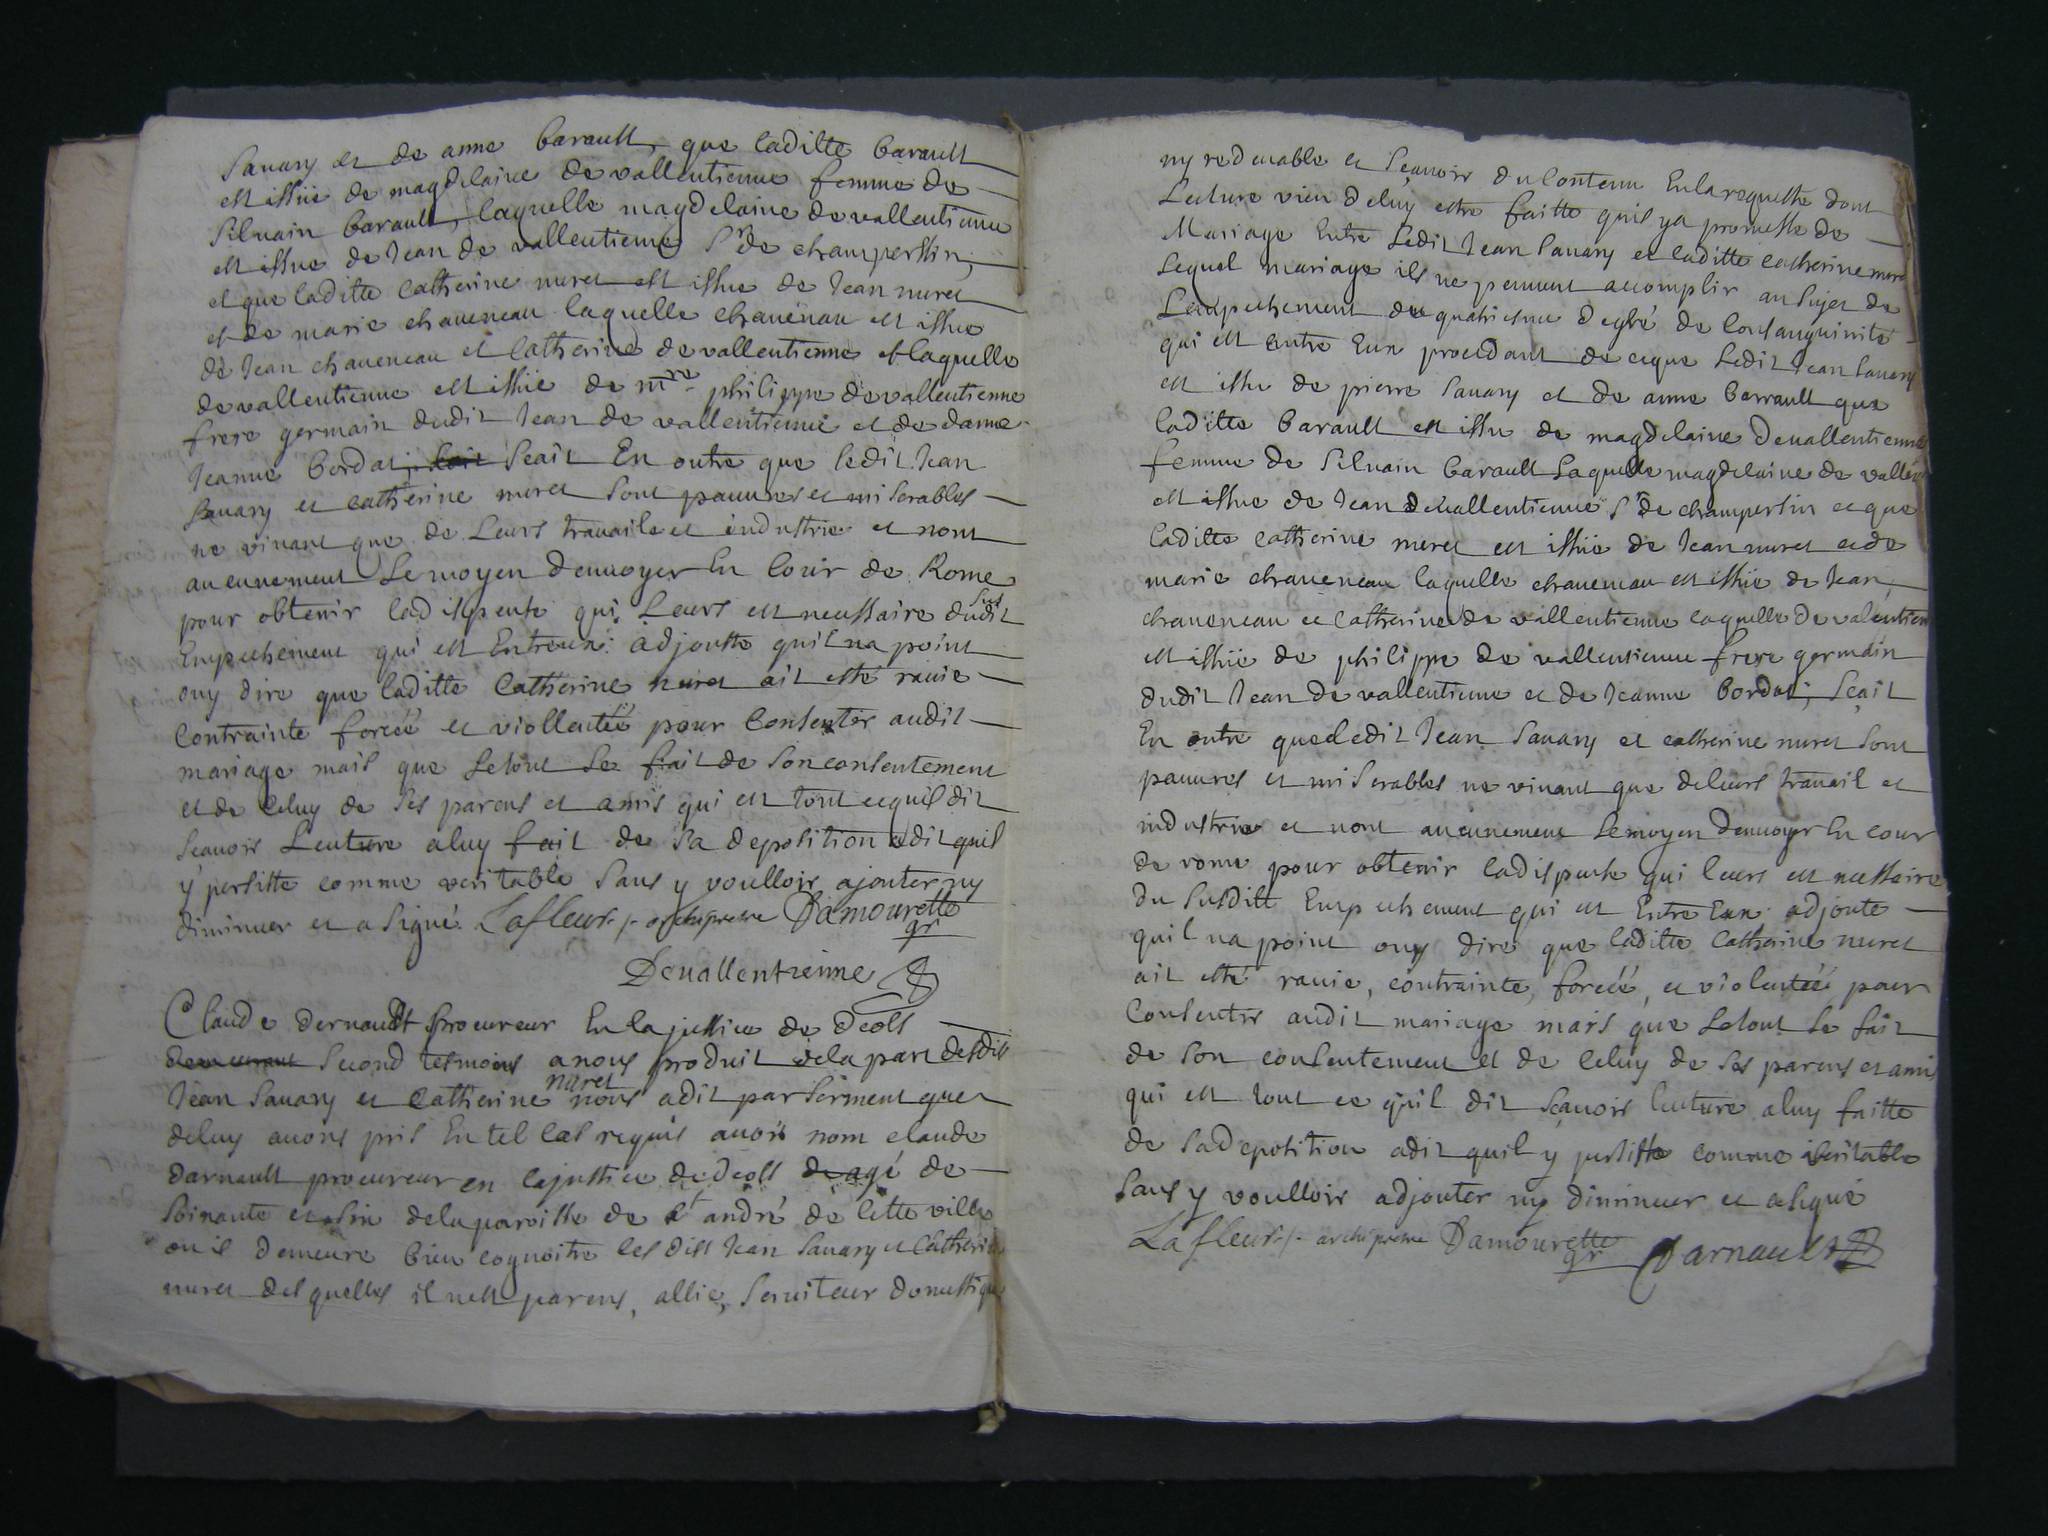 Sauary et de anne barault, que laditte barault
est issüe de magdelaine de vallentienne femme de
Siluain barault, laquelle magdelaine de vallentienne
est issue de Jean de vallentienne Sr de champerssin,
et que laditte catherine muret est issue de Jean muret
et de marie chaueneau laquelle chauenau est issue
de Jean chaueneau et Catherine de vallentienne et laquelle
de vallentienne est issüe de mre philippe de vallentienne
frere germain dudit Jean de vallentienne et de dame
Jeanne bordat, Scait En outre que ledit Jean
Sauary et catherine muret sont pauures et miserables
ne viuant que de Leurs trauaile et industrie et nont
aucunement Le moyen denuoyer En Cour de Rome
pour obtenir ladispente qui Leurs est necessaire dudit sus
Empechement qui est Entreux: adjoutte quil na point
ouy dire que laditte Catherine muret ait esté rauie
Contrainte forcéé et viollentéé pour Consentir audit
mariage mais que Letout Se fait de Son consentement
et de Celuy de Ses parens et amis qui est tout cequil dit
Scauoir Lecture aluy fait de Sa deposition a dit quil
y persiste comme veritable Sans y voulloir ajouter ny
diminuer et a Signé. Lafleur archiprestre Damourette
gr
Deuallentienne
Claude dernault procureur En la justice de deols
demeurant Second tesmoins anous produit dela part desdit
Jean Sauary et Catherine muret nous adit par Serment que
deluy auons pris En tel Cas requis auoir nom claude
darnault procureur en lajustice de deols de agé de
Soixante et six dela paroisse de st andré de Cette ville
ou il demeure bien cognoitre les dits Jean Sauary et Catherine
muret desquelles il nest parens, allie, Seruiteur domestique
ny redeuable et Scauoir du Contenu En la requeste dont
Lecture vien deluy estre faitte quil y a promesse de
Mariage Entre Ledit Jean Sauary et laditte catherine muret
Lequel mariage ils ne peuuent accomplir au Sujet de
Lempechement du quatriesme degré de Consanguinité
qui est entre Eux procedant de ceque Ledit Jean Sauary
est issu de pierre Sauary et de anne barrault que
laditte barault est issu de magdelaine deuallentienne
femme de Siluain barault Laquelle magdelaine de vallen
est issue de Jean deuallentienne Sr de champersin et que
laditte catherine muret est issüe de Jean muret et de
marie chaueneau laquelle chaueneau est issüe de Jean
chaueneau et Catherine de vallentienne laquelle de valentien
est issüe de philippe de vallentienne frere germain
dudit Jean de vallentienne et de Jeanne bordat, Scait
En outre que ledit Jean Sauary et catherine muret sont
pauures et miserables ne viuant que de leurs trauail et
industrie et nont aucunement Le moyen denuoyer En cour
de rome pour obtenir la dispente qui leurs est necessaire
du Susditt Empechement qui est Entre Eux: adjoute
quil na point ouy dire que laditte Catherine muret
ait esté rauie, contrainte, forcéé, et violentéé pour
Consentir audit mariage mais que Letout Se fait
de Son consentement et de Celuy de Ses parens et amis
qui est tout ce quil dit Scauoir lecture aluy faitte
de Sa deposition adit quil y persiste comme veritable
Sans y voulloir adjouter ny diminuer et a Signé
Lafleur archiprestre Damourette Darnault
gr